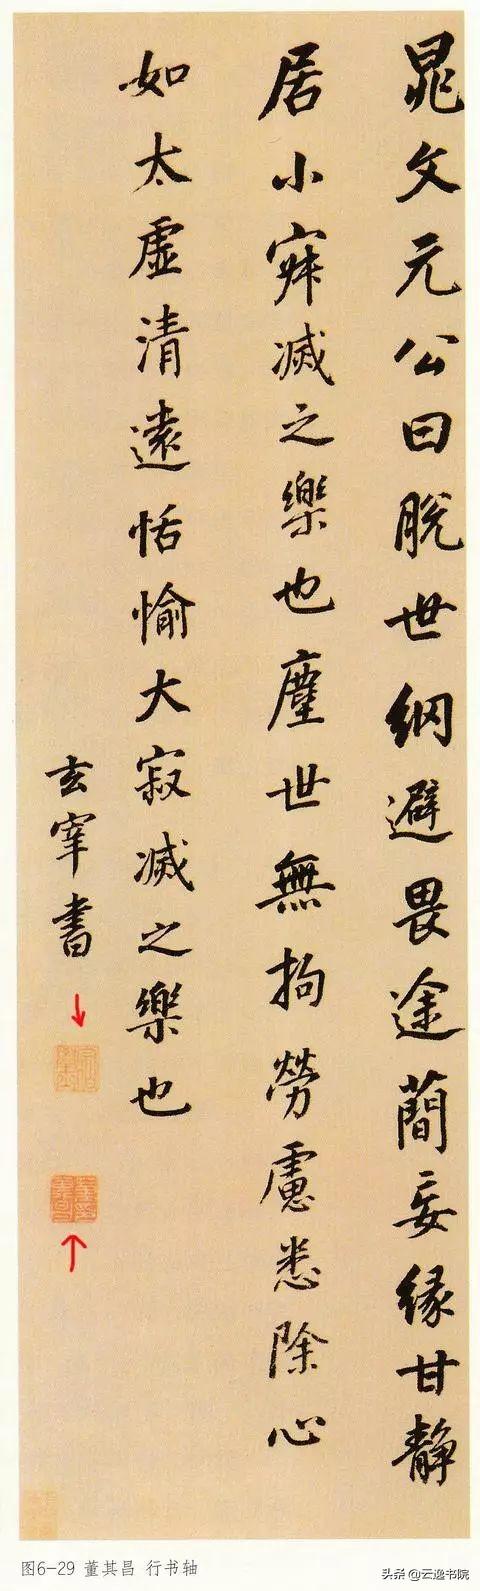 晁文元公曰脱世網避畏途簡妄緣甘静
居小寂滅之樂也塵世無拘勞慮悉除心
如太虛清遠恬愉大寂滅之樂也
玄宰書
图6-29 董其昌 行书轴
头条 @云逸书院